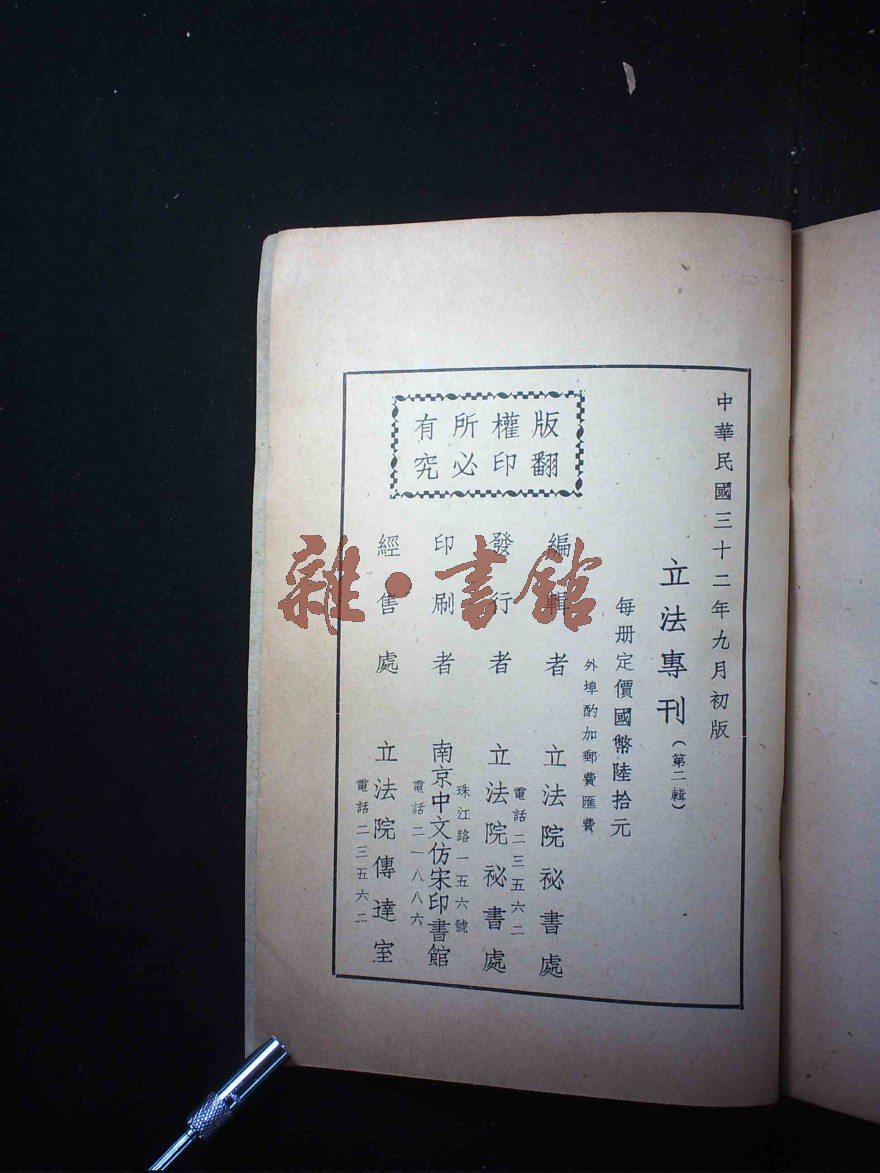 中華民國三十二年九月初版
立法專刊(第二輯)
每册定價國幣陸拾元
外埠酌加郵費匯費
版權所有
翻印必究
編輯者 立法院祕書處
電話二三五六二
發行者 立法院祕書處
珠江路一五六號
印刷者 南京中文仿宋印書館
電話二一八八六
經售處 立法院傳達室
電話二三五六二
雜·書館